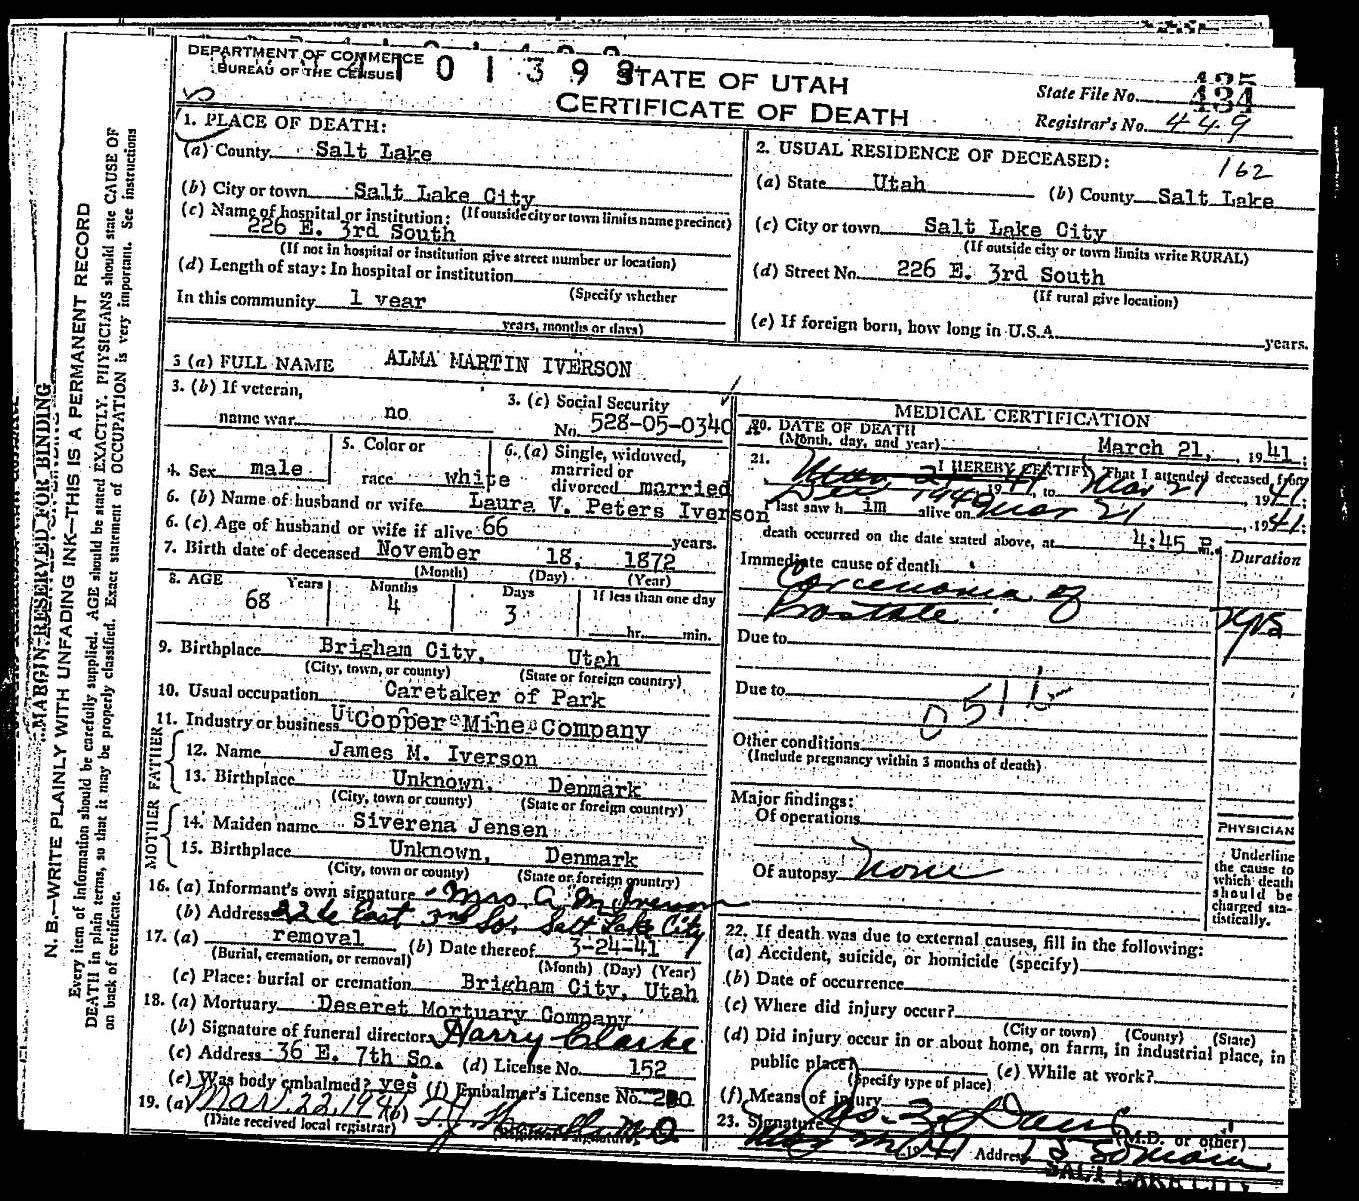 DEPARTMENT OF COMMERCE
BUREAU OF THE CENSUS
4101399
STATE OF UTAH
CERTIFICATE OF DEATH
State File No. 434
Registrar's No. 449
1. PLACE OF DEATH:
(a) County Salt Lake
(b) City or town Salt Lake City
(c) Name of hospital or institution: (If outside city or town limits name precinct)
226 E. 3rd South
(If not in hospital or institution give street number or location)
(d) Length of stay: In hospital or institution
(Specify whether
In this community 1 year
years, months or days)
2. USUAL RESIDENCE OF DECEASED: 162
(a) State Utah (b) County Salt Lake
(c) City or town Salt Lake City
(If outside city or town limits write RURAL)
(d) Street No. 226 E. 3rd South
(If rural give location)
(e) If foreign born, how long in U.S.A. years.
3 (a) FULL NAME ALMA MARTIN IVERSON
3. (b) If veteran,
name war no
3. (c) Social Security
No. 528-05-0340
4. Sex male
5. Color or
race white
6. (a) Single, widowed,
married or
divorced married
6. (b) Name of husband or wife Laura V. Peters Iverson
6. (c) Age of husband or wife if alive 66 years.
7. Birth date of deceased November 18, 1872
(Month) (Day) (Year)
8. AGE Years Months Days If less than one day
68 4 3 hr. min.
9. Birthplace Brigham City, Utah
(City, town, or county) (State or foreign country)
10. Usual occupation Caretaker of Park
11. Industry or business Ut Copper Mine Company
FATHER
12. Name James M. Iverson
13. Birthplace Unknown, Denmark
(City, town or county) (State or foreign country)
MOTHER
14. Maiden name Siverena Jensen
15. Birthplace Unknown, Denmark
(City, town or county) (State or foreign country)
16. (a) Informant's own signature Mrs. A. M. Iverson
(b) Address 226 East 3rd So. Salt Lake City
17. (a) removal (b) Date thereof 3-24-41
(Burial, cremation, or removal) (Month) (Day) (Year)
(c) Place: burial or cremation Brigham City, Utah
18. (a) Mortuary Deseret Mortuary Company
(b) Signature of funeral director Harry Clarke
(c) Address 36 E. 7th So. (d) License No. 152
(e) Was body embalmed? yes (f) Embalmer's License No.
19. (a) Mar. 22, 1941 (b) M.D.
(Date received local registrar)
MEDICAL CERTIFICATION
20. DATE OF DEATH
(Month, day, and year) March 21, 1941;
21. I HEREBY CERTIFY, That I attended deceased from
Dec 1940, to Mar 21 1941
I last saw him alive on Mar 21, 1941;
death occurred on the date stated above, at 4:45 P.m.
Duration
Immediate cause of death
Carcenoma of
Prostate yrs
Due to
Due to
051b
Other conditions
(Include pregnancy within 3 months of death)
Major findings:
Of operations
Of autopsy None
PHYSICIAN
Underline
the cause to
which death
should be
charged sta-
tistically.
22. If death was due to external causes, fill in the following:
(a) Accident, suicide, or homicide (specify)
(b) Date of occurrence
(c) Where did injury occur?
(City or town) (County) (State)
(d) Did injury occur in or about home, on farm, in industrial place, in
public place? (e) While at work?
(Specify type of place)
(f) Means of injury
23. Signature
(M.D. or other)
1941 Address
SALT LAKE CITY
MARGIN RESERVED FOR BINDING
N. B.—WRITE PLAINLY WITH UNFADING INK—THIS IS A PERMANENT RECORD
Every item of information should be carefully supplied. AGE should be stated EXACTLY. PHYSICIANS should state CAUSE OF
DEATH in plain terms, so that it may be properly classified. Exact statement of OCCUPATION is very important. See instructions
on back of certificate.